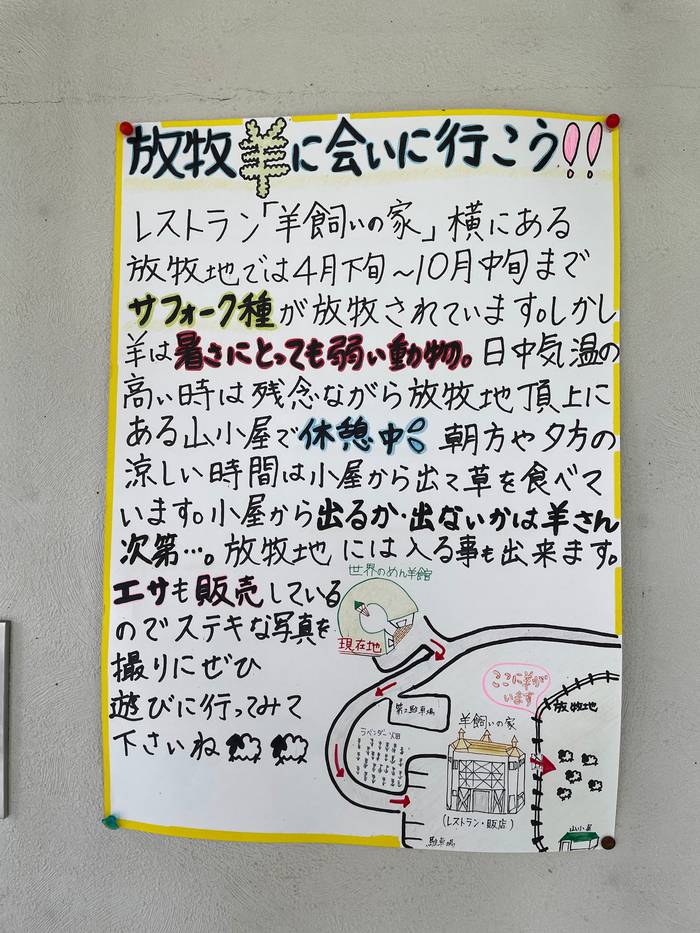 放牧羊に会いに行こう!!
レストラン「羊飼いの家」横にある
放牧地では4月下旬〜10月中旬まで
サフォーク種が放牧されています。しかし
羊は暑さにとっても弱い動物。日中気温の
高い時は残念ながら放牧地頂上に
ある山小屋で休憩中 朝方や夕方の
涼しい時間は小屋から出て草を食べて
います。小屋から出るか・出ないかは羊さん
次第…。放牧地には入る事も出来ます。
エサも販売している
のでステキな写真を
撮りにぜひ
遊びに行ってみて
下さいね
世界のめん羊館
現在地
第2駐車場
ラベンダー畑
羊飼いの家
(レストラン・販店)
駐車場
ここに羊が
います
放牧地
山小屋